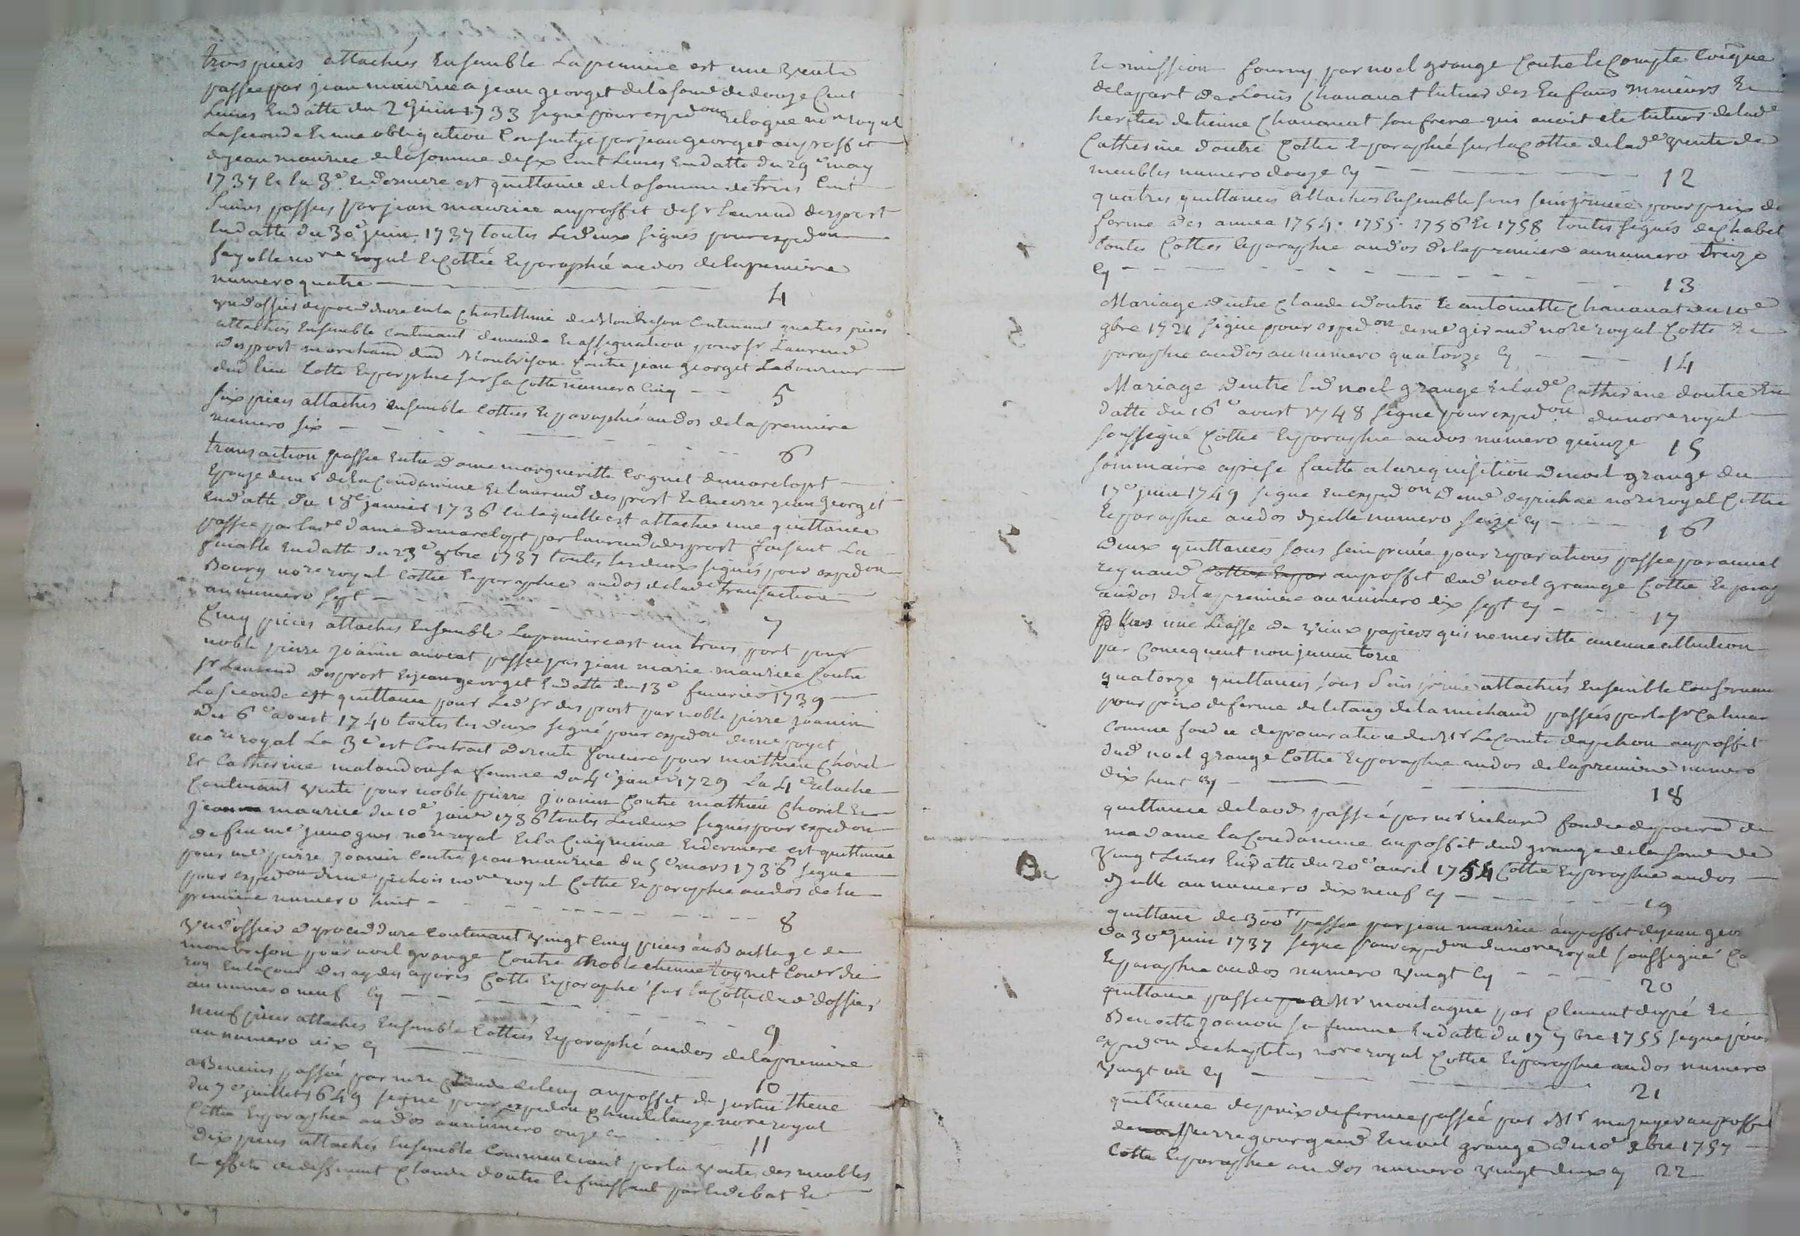 trois pieces attachées Ensemble La premiere est une vente
passée par jean maurice a jean georget de la somme de douze Cent
Livres En datte du 2e juin 1733 signé pour expedon nore royal
La seconde Est une obligation Consentye par jean georget au proffit
de jean maurice de la somme de six Cent Livres En datte du 29e may
1737 et la 3e Et derniere est quittance de la somme de trois Cent
Livres passée par jean maurice au proffit de sr Laurend desprost
En datte du 30e juin 1737 toutes Les deux signés pour expedon
fayolle nore royal Et Cottée Et paraphée au dos de la premiere
numero quatre 4
un dossier de procedure en la Chastellenie de Montbrison Contenant quatre pieces
attachées Ensemble Contenant demande Et assignation pour sr Laurend
desprost marchand dud Montbrison Contre jean georget Laboureur
dud lieu Cotté Et paraphé sur sa Cotte numero Cinq 5
six pieces attachés Ensemble Cottées Et paraphé au dos de la premiere
numero six 6
transaction passée Entre dame margueritte Coignet de marclopt
Epouze de mr de la Condamine Et Laurend desprost Et pierre jean georget
En datte du 18e janvier 1736 En laquelle est attachée une quittance
passée par lade dame de marclopt par Laurend desprost faisant La
finalle En datte du 23e 9bre 1737 toutes les deux signés pour expedon
Bourg nore royal Cottée Et paraphée au dos de lade transaction
au numero sept 7
Cinq pieces attachés Ensemble La premiere est un trans port pour
noble pierre joanin avocat passée par jean marie maurice Contre
sr Laurend desprost Et jean georget En datte du 13e fevrier 1739
La seconde est quittance pour Led sr desprost par noble pierre joanin
du 6e aoust 1740 toutes les deux signé pour expedon de me poyet
nore royal La 3e est Contrait de rente fonciere pour mathieu Chovel
Et Catherine malandon sa femme du 4e janer 1729 La 4e Relache
Contenant vente pour noble pierre joanin Contre mathieu Chovel Et
jean maurice du 10e janer 1736 toutes Les deux signés pour expedon
de feu me nore royal Et la Cinquieme Et derniere est quittance
pour me pierre joanin Contre jean maurice du 5e mars 1736 signé
pour expedon de me pichois nore royal Cottée Et paraphée au dos de la
premiere numero huit 8
un dossier de procedure Contenant vingt Cinq pieces au Bailliage de
montbrison pour noel grange Contre noble etienne Coignet Couer du
roy En la Cour des aydes a paris Cotté Et paraphé sur la Cotte dud dossier
au numero neuf Cy 9
neuf pieces attachés Ensemble Cottés Et paraphé au dos de la premiere
au numero dix Cy 10
abenevis passée par mre au proffit de justin thene
du 7e juillet 1649 signé pour expedon nore royal
Cottée Et paraphée au dos au numero onze Cy 11
Dix pieces attachés Ensemble Commencant par la vente des meubles
Et effets de deffunt Claude doutre Et finissant par Le debat Et
remission fourny par noel grange Contre le Compte Coique
de la part de Louis Chavanat tuteur des Enfans mineurs Et
heritier detienne Chavanat son frere qui avoit ete tuteur de lade
Catherine doutre Cotté Et paraphé sur la Cotte de lade vente de
meubles numero douze Cy 12
quatres quittances attachés Ensemble sous seing privée pour prix de
ferme des année 1754. 1755. 1756 Et 1758 toutes signés de Chabet
toutes Cottées Et paraphée au dos de la premiere au numero treize
Cy 13
Mariage d'entre Claude doutre Et antoinette Chavanat du 10e
9bre 1721 signé pour expedon de me giraud nore royal Cotté Et
paraphé au dos au numero quatorze Cy 14
Mariage d'entre Led noel grange Et lade Catherine doutre En
datte du 16e aoust 1748 signé pour expedon du nore royal
soussigné Cotté Et paraphé au dos numero quinze 15
sommaire aprise faitte a la requisition de noel grange du
17e juin 1749 signé En expedon de me nore royal Cottée
Et paraphé au dos d'jcelle numero seize Cy 16
deux quittances sous seing privée pour reparations passée par anual
reynaud au proffit dud noel grange Cottée Et parap
au dos de la premiere au numero dix sept Cy 17
Plus une Liasse de vieux papiers qui ne meritte aucune attention
par Consequent non jnventorié
quatorze quittances sous seing privée attachées Ensemble Conservant
pour prix de ferme de letang de la michaud passées par le sr Calmar
Comme fondé de procuration de Mr Le Comte dapchon au proffit
dud noel grange Cottée Et paraphée au dos de la premiere numero
dix huit Cy 18
quittance de laod passée par mr Richard fondé de pouvoir de
madame la Condamine au proffit dud grange de la somme de
vingt Livres En datte du 20e avril 1754 Cottée Et paraphée au dos
d'jcelle au numero dix neuf Cy 19
quittance de 300lt passée par jean maurice au proffit de jean geor
du 30e juin 1737 signé pour expedon du nore royal soussigné Co
Et paraphée au dos numero vingt Cy 20
quittance passée par Mr montagne par Et
Benoitte joanon sa femme En datte du 17e 9bre 1755 signé pour
expedon de chastelus nore royal Cottée Et paraphée au dos numero
vingt un Cy 21
quittance de prix de ferme passée par Mr mazuyer au proffit
de pierre gourgand Et noel grange du 10e 9bre 1757
Cotté Et paraphée au dos numero vingt deux Cy 22